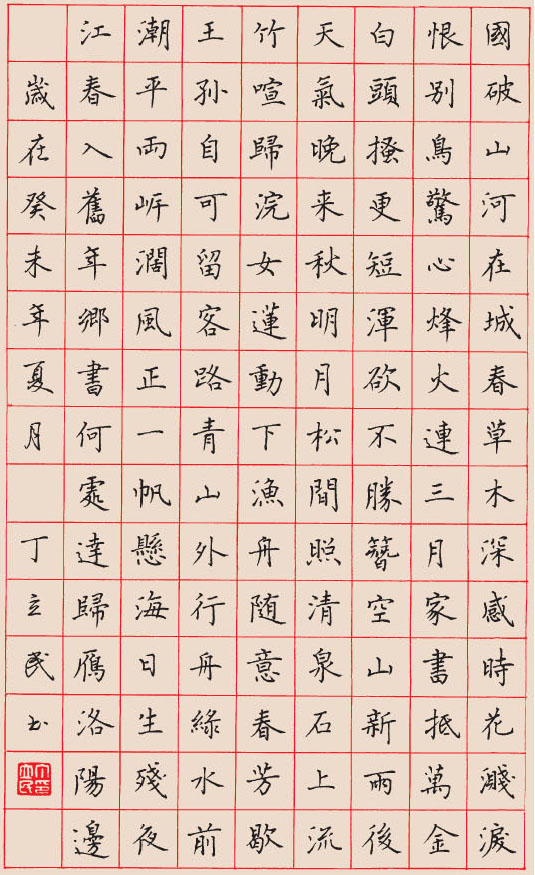 國破山河在城春草木深感時花濺淚
恨別鳥驚心烽火連三月家書抵萬金
白頭搔更短渾欲不勝簪空山新雨後
天氣晚来秋明月松間照清泉石上流
竹喧歸浣女蓮動下漁舟随意春芳歇
王孙自可留客路青山外行舟綠水前
潮平両岸濶風正一帆懸海日生殘夜
江春入舊年鄉書何處達歸鴈洛陽邊
嵗在癸未年夏月 丁立民书